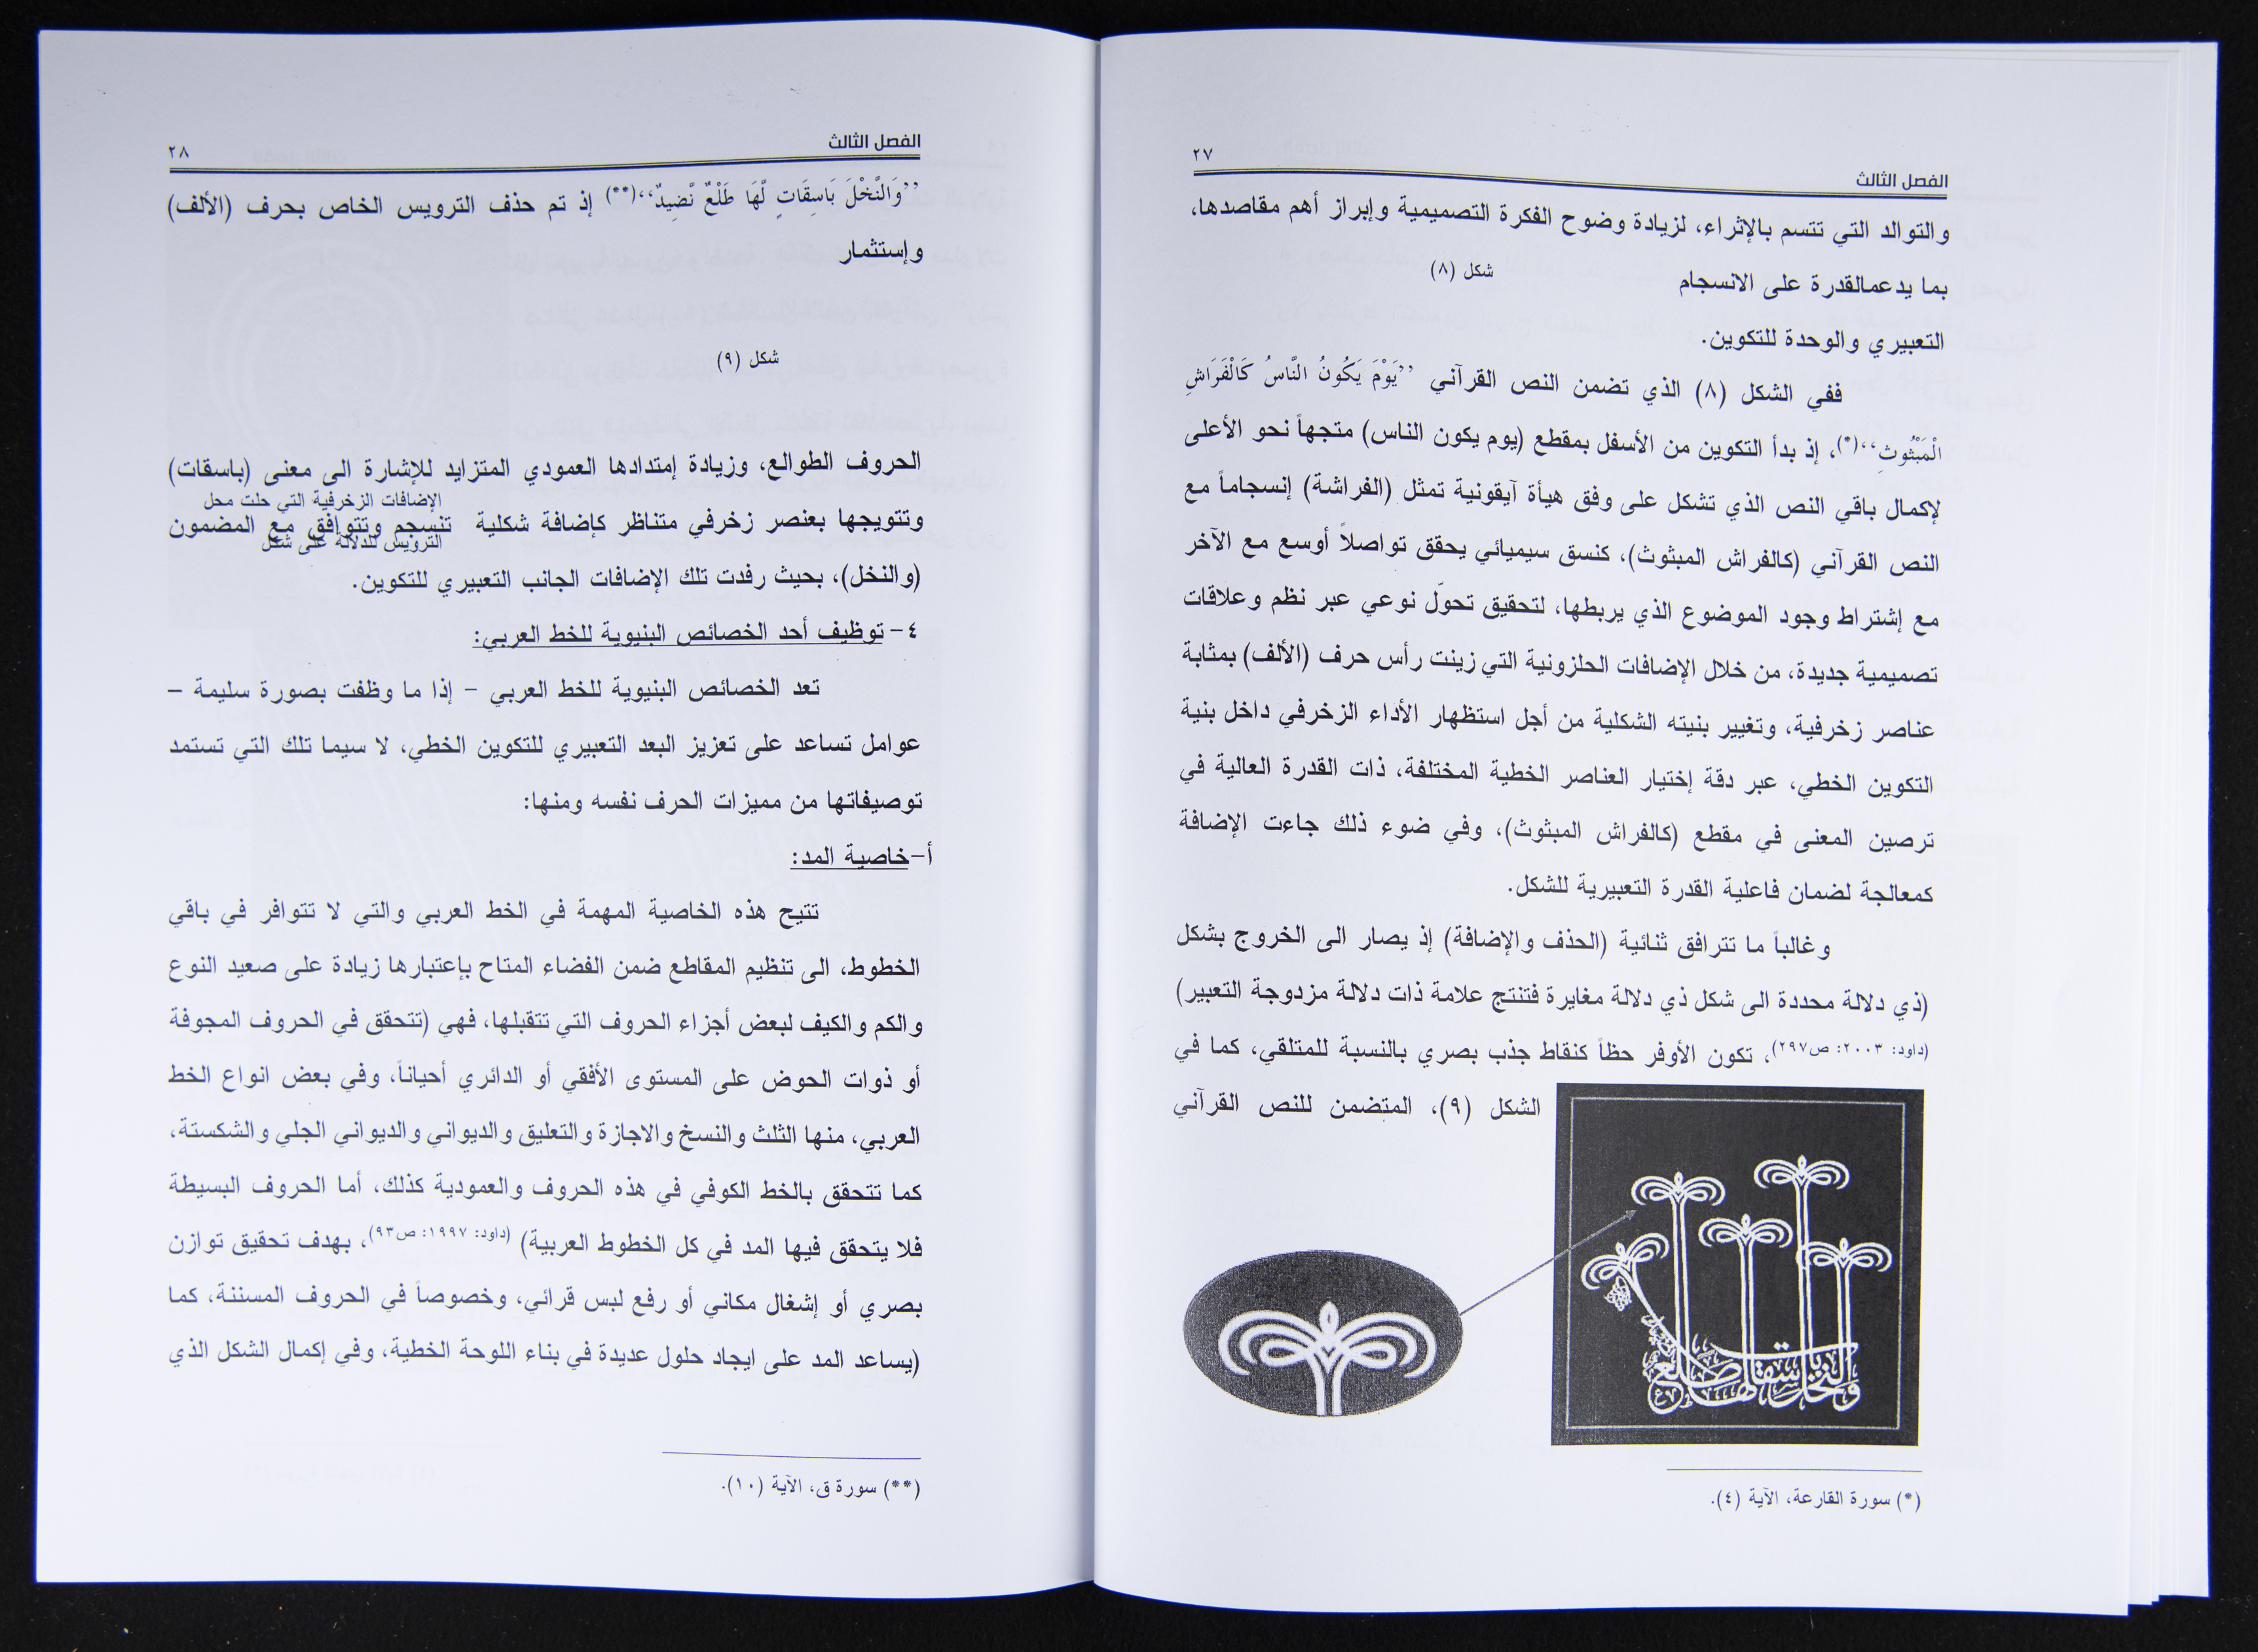 الفصل الثالث
٢٧
والتوالد التي تتسم بالإثراء، لزيادة وضوح الفكرة التصميمية وإبراز أهم مقاصدها،
شكل (٨)
بما يدعمالقدرة على الانسجام
التعبيري والوحدة للتكوين.
ففي الشكل (٨) الذي تضمن النص القرآني ’’يَوْمَ يَكُونُ النَّاسُ كَالْفَرَاشِ
الْمَبْثُوثِ،،(*)، إذ بدأ التكوين من الأسفل بمقطع (يوم يكون الناس) متجهاً نحو الأعلى
لإكمال باقي النص الذي تشكل على وفق هيأة آيقونية تمثل (الفراشة) إنسجاماً مع
النص القرآني (كالفراش المبثوث)، كنسق سيميائي يحقق تواصلاً أوسع مع الآخر
مع إشتراط وجود الموضوع الذي يربطها، لتحقيق تحوّل نوعي عبر نظم وعلاقات
تصميمية جديدة، من خلال الإضافات الحلزونية التي زينت رأس حرف (الألف) بمثابة
عناصر زخرفية، وتغيير بنيته الشكلية من أجل استظهار الأداء الزخرفي داخل بنية
التكوين الخطي، عبر دقة إختيار العناصر الخطية المختلفة، ذات القدرة العالية في
ترصين المعنى في مقطع (كالفراش المبثوث)، وفي ضوء ذلك جاءت الإضافة
كمعالجة لضمان فاعلية القدرة التعبيرية للشكل.
وغالباً ما تترافق ثنائية (الحذف والإضافة) إذ يصار الى الخروج بشكل
(ذي دلالة محددة الى شكل ذي دلالة مغايرة فتنتج علامة ذات دلالة مزدوجة التعبير)
(داود: ٢٠٠٣: ص٢٩٧)، تكون الأوفر حظاً كنقاط جذب بصري بالنسبة للمتلقي، كما في
الشكل (٩)، المتضمن للنص القرآني
والنخل باسقات لها طلع
(*) سورة القارعة، الآية (٤).
الفصل الثالث
٢٨
’’وَالنَّخْلَ بَاسِقَاتٍ لَّهَا طَلْعٌ نَّضِيدٌ،،(**) إذ تم حذف الترويس الخاص بحرف (الألف)
وإستثمار
شكل (٩)
الحروف الطوالع، وزيادة إمتدادها العمودي المتزايد للإشارة الى معنى (باسقات)
الإضافات الزخرفية التي حلت محل
وتتويجها بعنصر زخرفي متناظر كإضافة شكلية تنسجم وتتوافق مع المضمون
الترويس للدلالة على شكل
(والنخل)، بحيث رفدت تلك الإضافات الجانب التعبيري للتكوين.
٤- توظيف أحد الخصائص البنيوية للخط العربي:
تعد الخصائص البنيوية للخط العربي - إذا ما وظفت بصورة سليمة -
عوامل تساعد على تعزيز البعد التعبيري للتكوين الخطي، لا سيما تلك التي تستمد
توصيفاتها من مميزات الحرف نفسه ومنها:
أ-خاصية المد:
تتيح هذه الخاصية المهمة في الخط العربي والتي لا تتوافر في باقي
الخطوط، الى تنظيم المقاطع ضمن الفضاء المتاح بإعتبارها زيادة على صعيد النوع
والكم والكيف لبعض أجزاء الحروف التي تتقبلها، فهي (تتحقق في الحروف المجوفة
أو ذوات الحوض على المستوى الأفقي أو الدائري أحياناً، وفي بعض انواع الخط
العربي، منها الثلث والنسخ والاجازة والتعليق والديواني والديواني الجلي والشكستة،
كما تتحقق بالخط الكوفي في هذه الحروف والعمودية كذلك، أما الحروف البسيطة
فلا يتحقق فيها المد في كل الخطوط العربية) (داود: ١٩٩٧: ص٩٣)، بهدف تحقيق توازن
بصري أو إشغال مكاني أو رفع لبس قرائي، وخصوصاً في الحروف المسننة، كما
(يساعد المد على ايجاد حلول عديدة في بناء اللوحة الخطية، وفي إكمال الشكل الذي
(**) سورة ق، الآية (١٠).